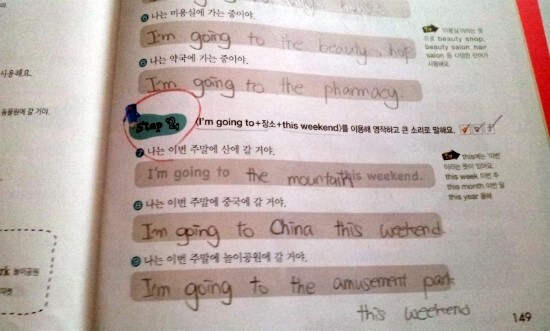 나는 미용실에 가는 중이야.
I'm going to the beauty shop
나는 약국에 가는 중이야.
I'm going to the pharmacy.
Step 2.
(I'm going to+장소+this weekend)를 이용해 영작하고 큰 소리로 말해요.
7 나는 이번 주말에 산에 갈 거야.
I'm going to the mountain this weekend.
8 나는 이번 주말에 중국에 갈 거야.
I'm going to China this weekend
9 나는 이번 주말에 놀이공원에 갈 거야.
I'm going to the amusement park
this weekend
beauty shop,
beauty salon, hair
salon 등 다양한 단어가
사용돼요.
this에는 '이번'
이라는 뜻이 있어요.
this week 이번 주
this month 이번 달
this year 올해
사용해요.
동물원에 갈 거야.
rk 놀이공원
마켓
149